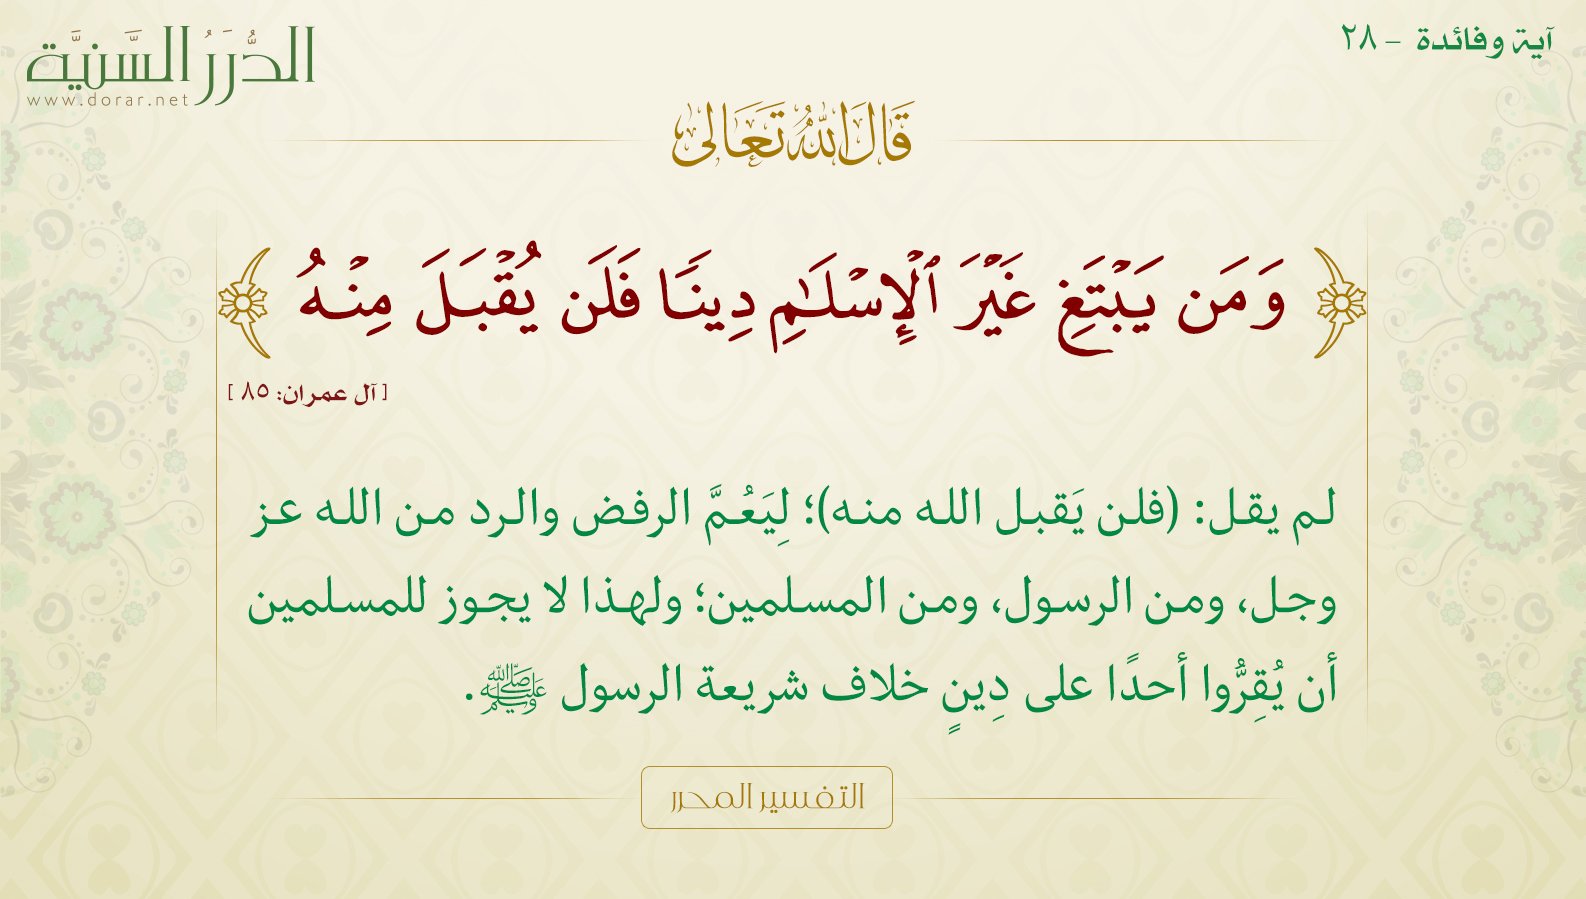 آية وفائدة - ٢٨
الدُّرَرُ السَّنيَّة
www.dorar.net
قَالَ اللهُ تَعَالَى
﴿ وَمَن يَبْتَغِ غَيْرَ ٱلْإِسْلَٰمِ دِينًا فَلَن يُقْبَلَ مِنْهُ ﴾
[آل عمران: ٨٥ ]
لم يقل: (فلن يَقبل الله منه)؛ لِيَعُمَّ الرفض والرد من الله عز
وجل، ومن الرسول، ومن المسلمين؛ ولهذا لا يجوز للمسلمين
أن يُقِرُّوا أحدًا على دِينٍ خلاف شريعة الرسول ﷺ.
التفسير المحرر